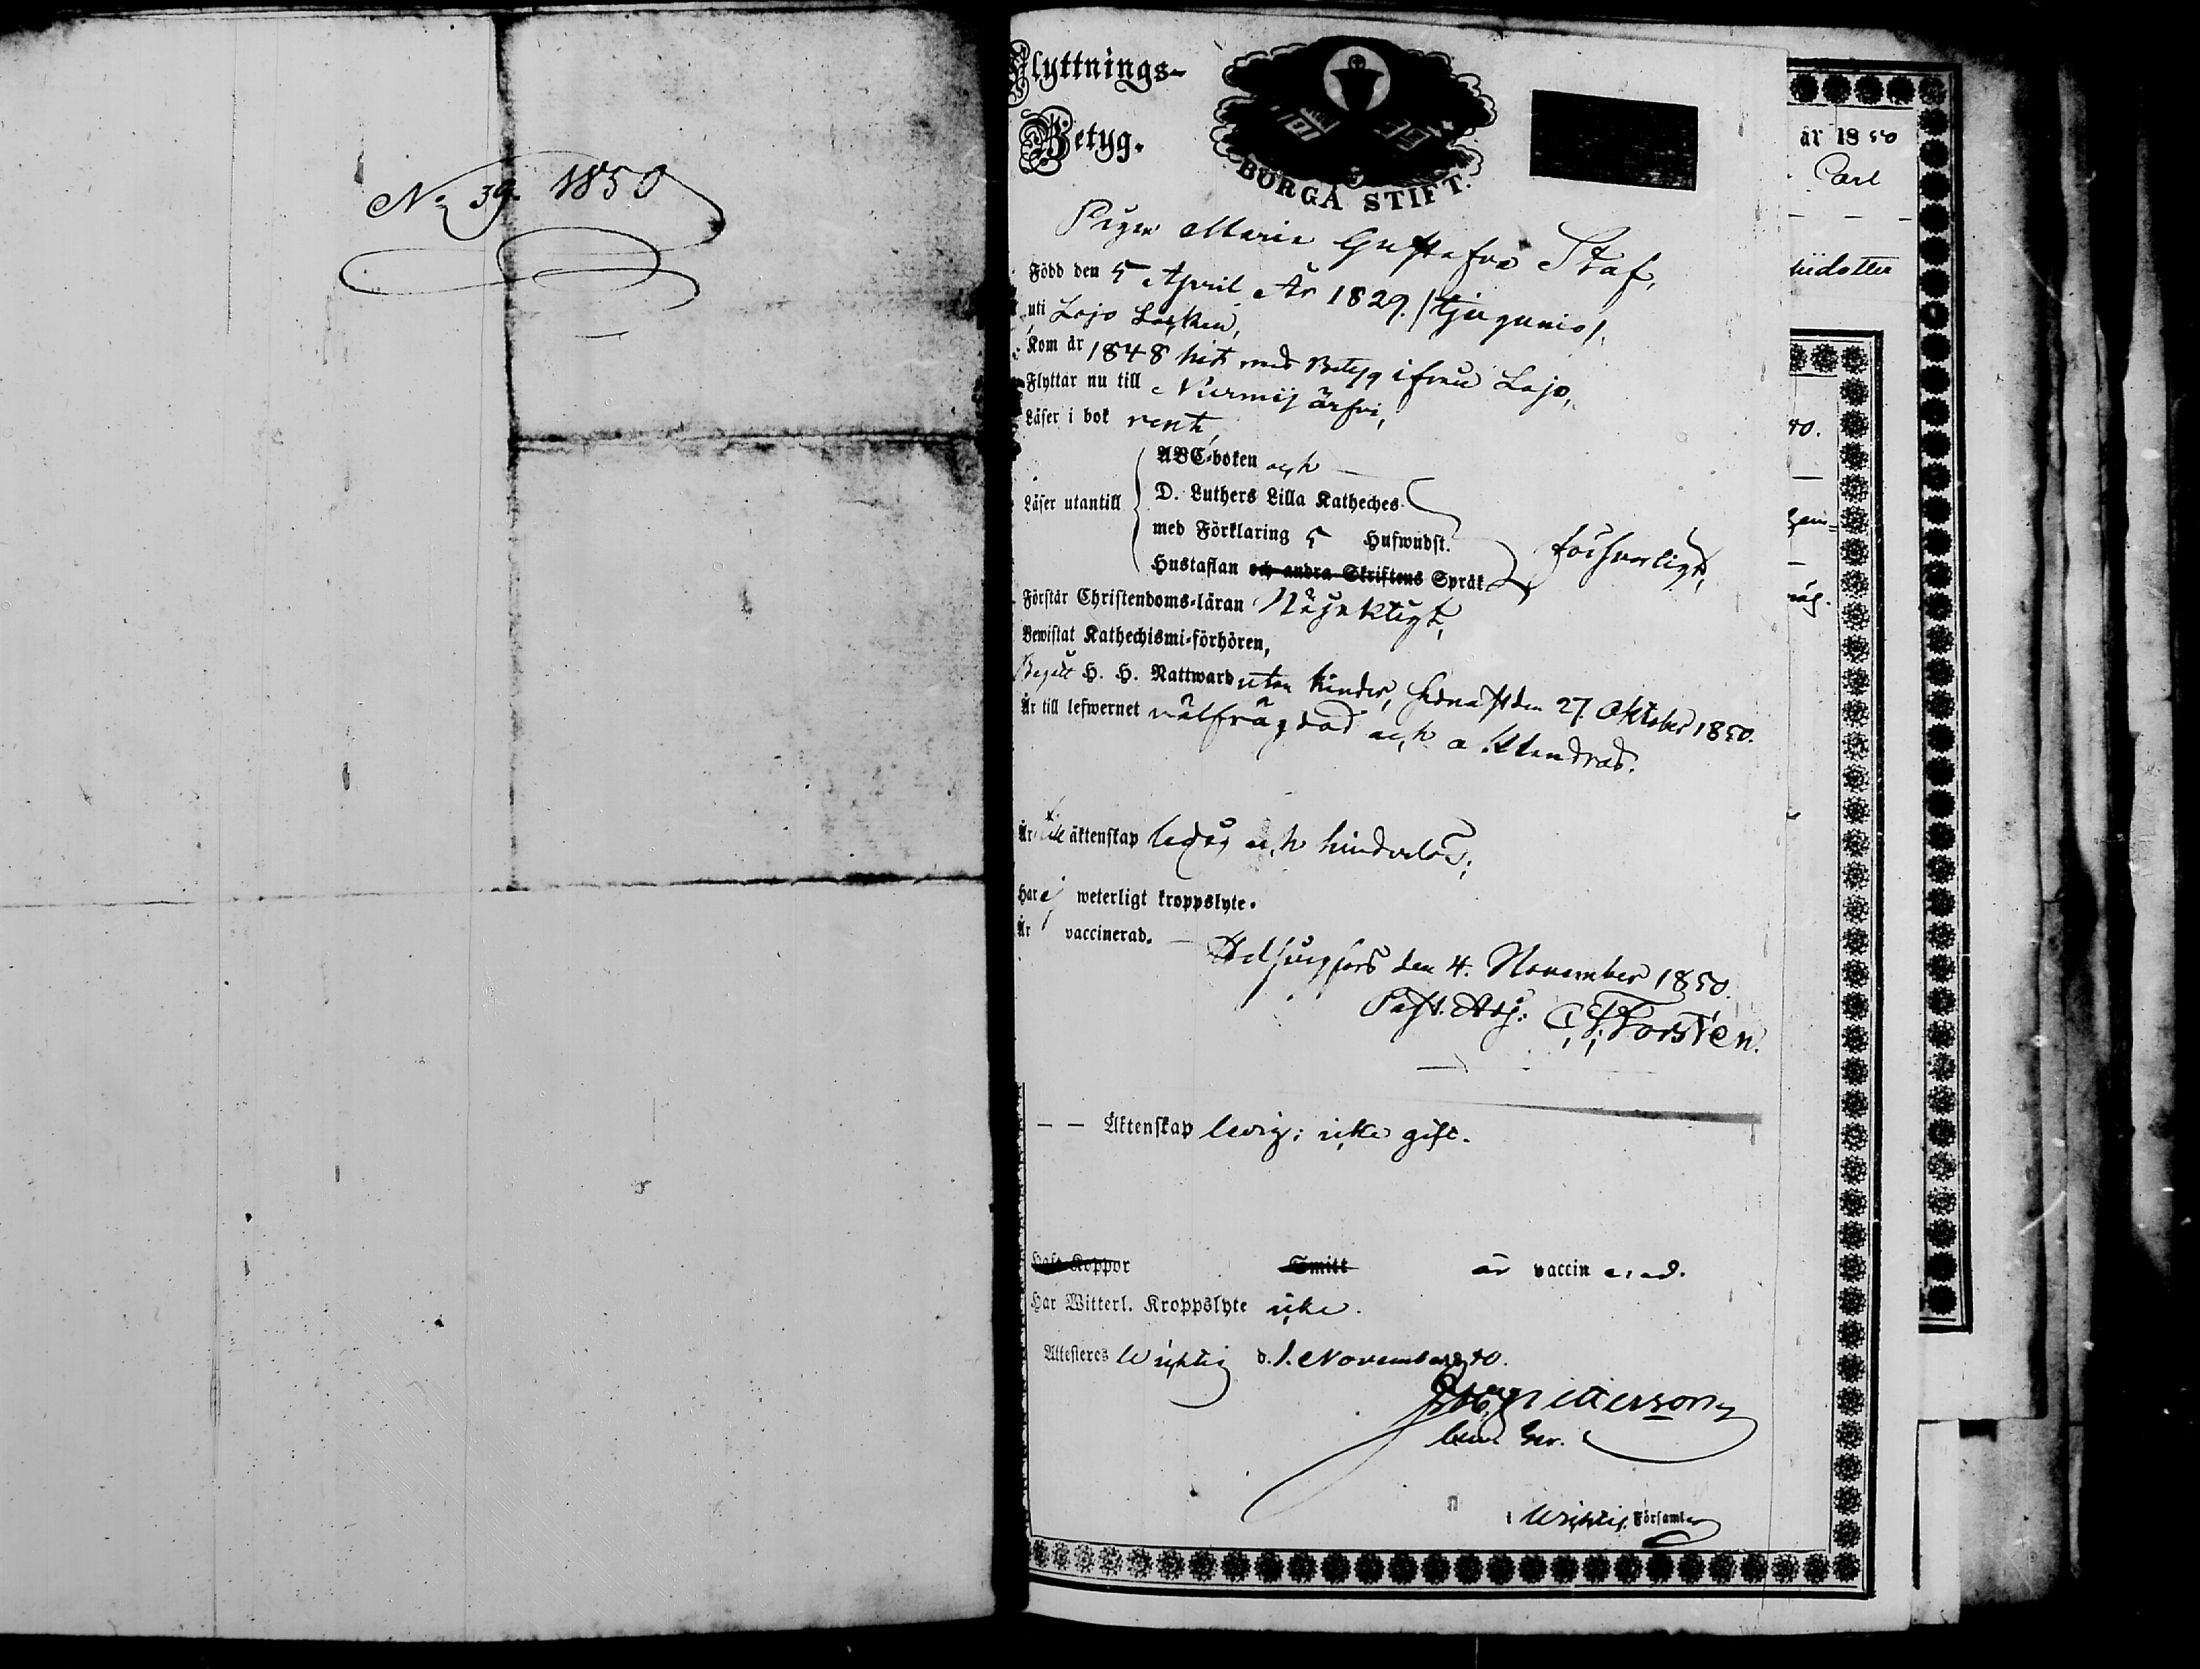 No 39. 1850
Flyttnings-
Betyg.
BORGÅ STIFT.
Pigan Maria Gustafva Staf,
Född den 5 April År 1829. /tjugunio/.
uti Lojo Socken,
Kom år 1848 hit med Betyg ifrån Lojo,
Flyttar nu till Nurmijärfvi,
Läser i bok rent,
ABC-boken och
Läser utantill
D. Luthers Lilla Katheches
med Förklaring 5 Hufwudst.
Hustaflan och andra Skriftens Språk
försvarligt,
Förstår Christendoms-läran Nöjaktigt,
Bewistat Kathechismi-förhören,
Begått H. H. Nattward utan hinder, sednast den 27 Oktober 1850.
Är till lefwernet välfrägdad och oklandrad.
Är till äktenskap ledig och hinderlös;
Har ej weterligt kroppslyte.
Är vaccinerad.
Helsingfors den 4. November 1850.
Past. Adj. C. F. Forstén.
— — Äktenskap ledig; icke gift.
Haft Koppor Smitt är vaccinerad.
Har Witterl. Kroppslyte icke.
Attesteras Wichtis d. 1. November 50.
i Wichtis Församl.
år 1850
Carl